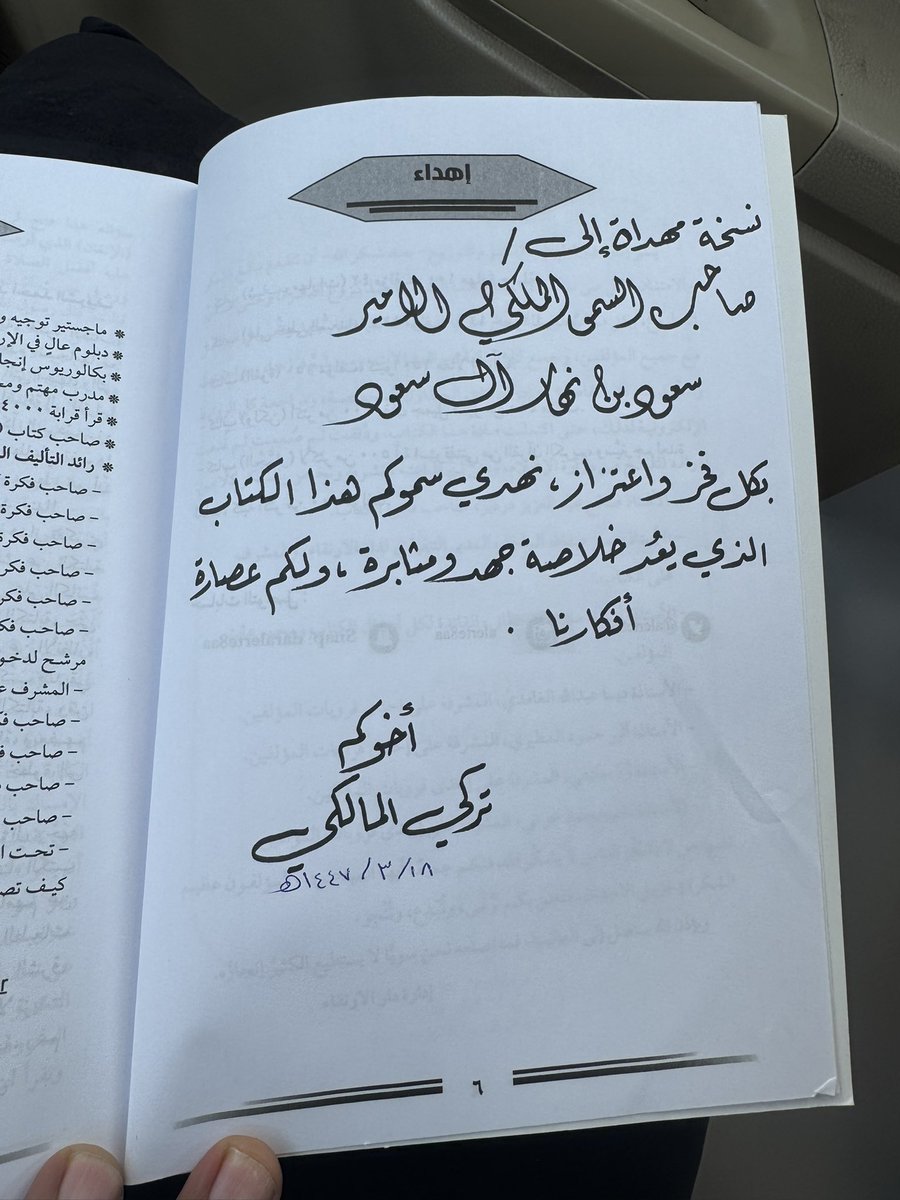 إهداء
نسخة مهداة إلى /
صاحب السمو الملكي الامير
سعود بن نهار آل سعود
بكل فخر واعتزاز، نهدي سموكم هذا الكتاب
الذي يعُد خلاصة جهد ومثابرة، ولكم عصارة
أفكارنا .
أخوكم
تركي المالكي
١٤٤٧/٣/١٨هـ
٦
* ماجستير توجيه و
* دبلوم عالٍ في الإر
* بكالوريوس إنجا
* مدرب مهتم ومع
* قرأ قرابة ٤٠٠٠
* صاحب كتاب (
* رائد التأليف ال
- صاحب فكرة ا
- صاحب فكرة
- صاحب فكرة
- صاحب فكر
- صاحب فكر
- صاحب فك
مرشح لدخو
- المشرف ع
- صاحب فك
- صاحب ف
- صاحب
- صاحب
- تحت ا
كيف تص